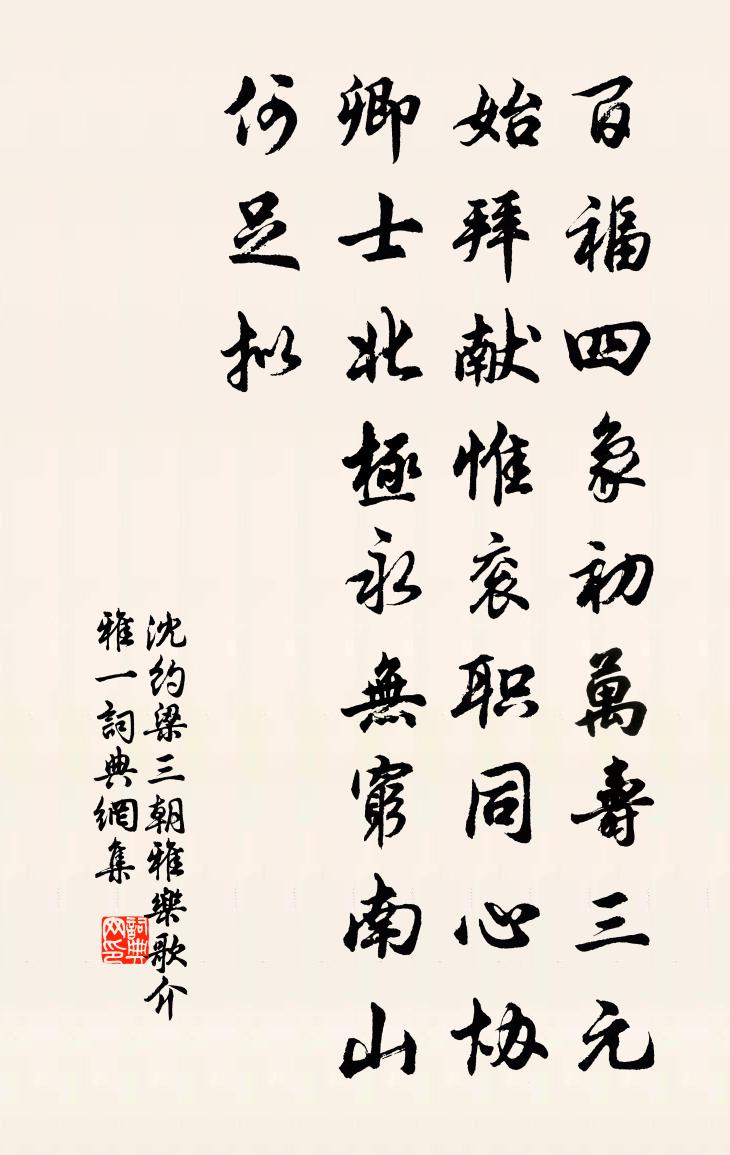 百福四象初萬壽三元
始拜献惟衮职同心协
卿士北極永無窮南山
何足拟
沈约梁三朝雅樂歌介
雅一詞典網集
詞典网印